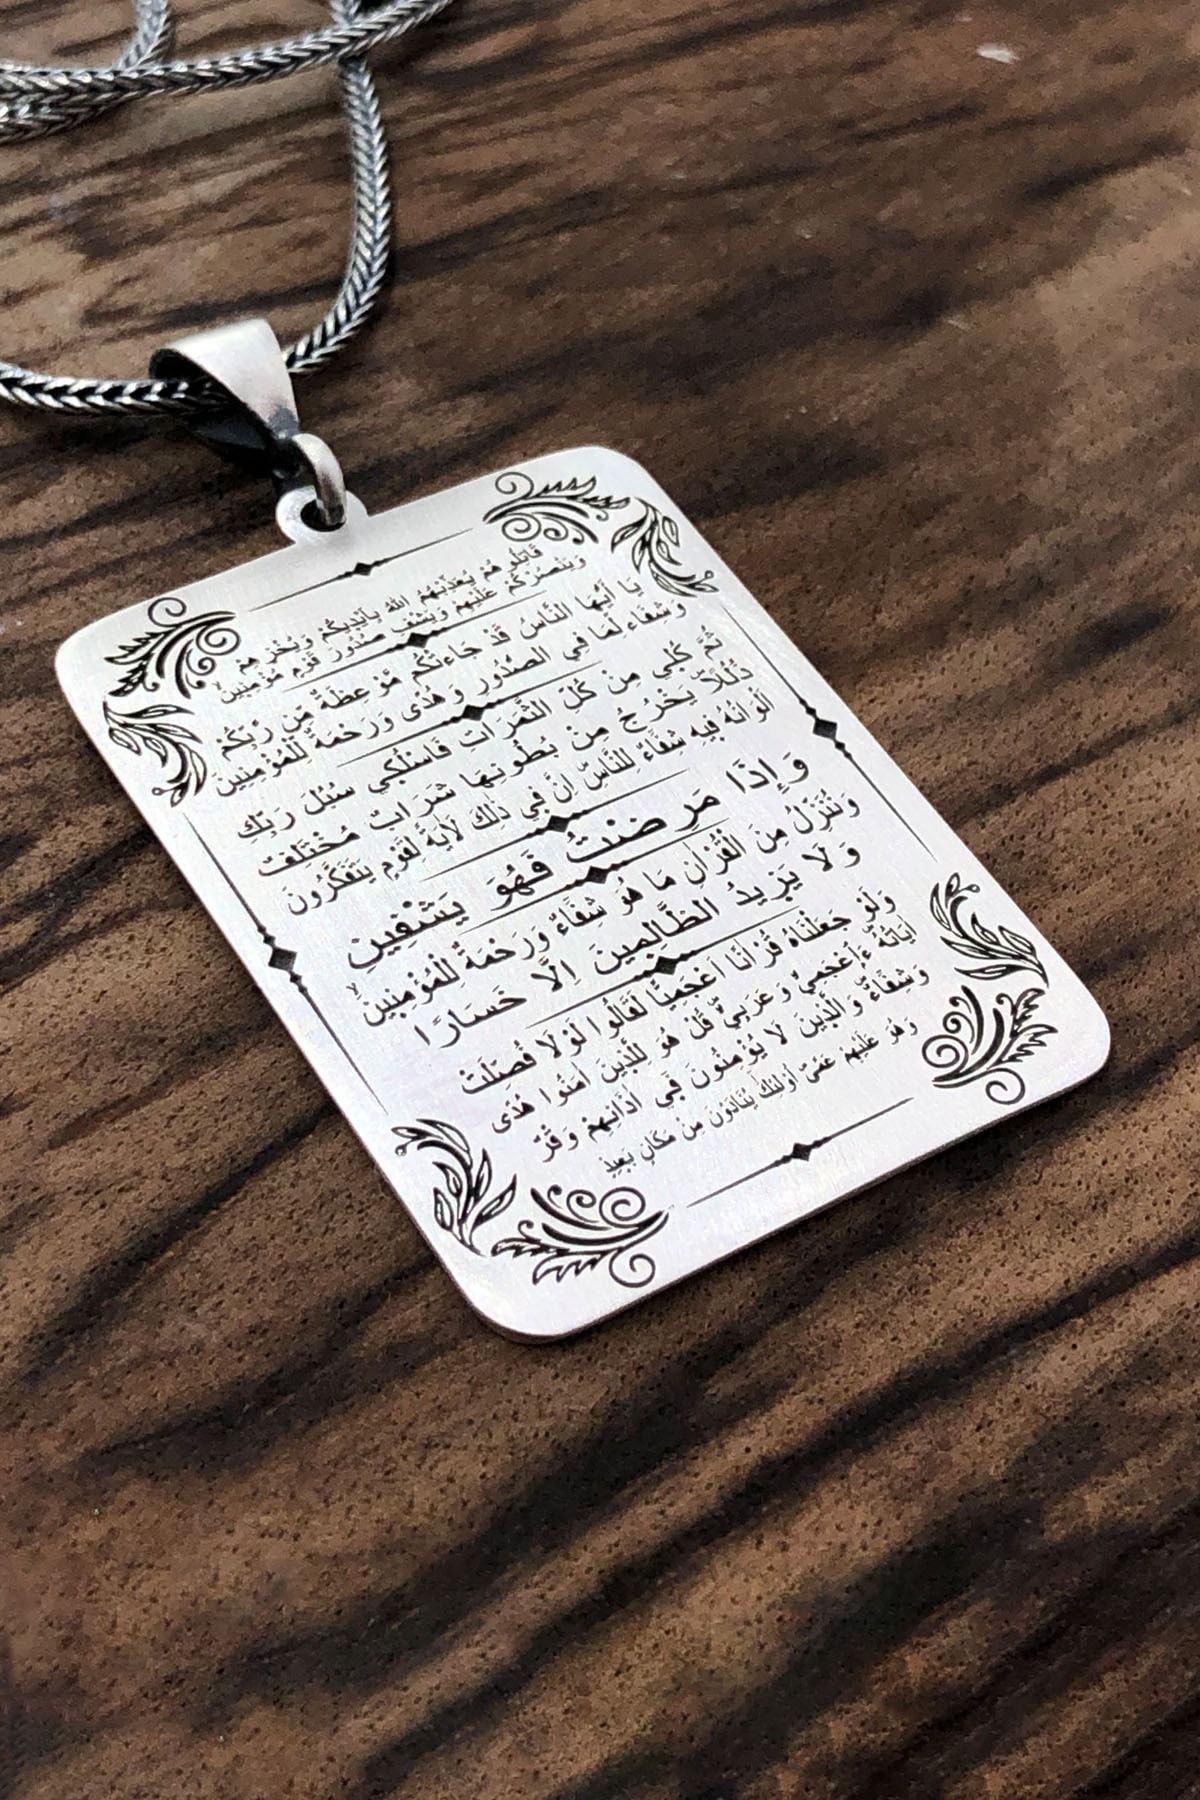 قَاتِلُو هُمْ يُعَذِّبْهُمُ اللّٰهُ بِاَيْدِيكُمْ وَيُخْزِهِمْ
وَيَنْصُرْكُمْ عَلَيْهِمْ وَيَشْفِ صُدُورَ قَوْمٍ مُؤْمِنِينَ
يَا اَيُّهَا النَّاسُ قَدْ جَاءَتْكُمْ مَوْعِظَةٌ مِنْ رَبِّكُمْ
وَشِفَاءٌ لِمَا فِي الصُّدُورِ وَهُدًى وَرَحْمَةٌ لِلْمُؤْمِنِينَ
ثُمَّ كُلِي مِنْ كُلِّ الثَّمَرَاتِ فَاسْلُكِي سُبُلَ رَبِّكِ
ذُلُلًا يَخْرُجُ مِنْ بُطُونِهَا شَرَابٌ مُخْتَلِفٌ
اَلْوَانُهُ فِيهِ شِفَاءٌ لِلنَّاسِ اِنَّ فِي ذٰلِكَ لَاٰيَةً لِقَوْمٍ يَتَفَكَّرُونَ
وَاِذَا مَرِضْتُ فَهُوَ يَشْفِينِ
وَنُنَزِّلُ مِنَ الْقُرْاٰنِ مَا هُوَ شِفَاءٌ وَرَحْمَةٌ لِلْمُؤْمِنِينَ
وَلَا يَزِيدُ الظَّالِمِينَ اِلَّا خَسَارًا
وَلَوْ جَعَلْنَاهُ قُرْاٰنًا اَعْجَمِيًّا لَقَالُوا لَوْلَا فُصِّلَتْ
اٰيَاتُهُ ءَاَعْجَمِيٌّ وَعَرَبِيٌّ قُلْ هُوَ لِلَّذِينَ اٰمَنُوا هُدًى
وَشِفَاءٌ وَالَّذِينَ لَا يُؤْمِنُونَ فِي اٰذَانِهِمْ وَقْرٌ
وَهُوَ عَلَيْهِمْ عَمًى اُولٰئِكَ يُنَادَوْنَ مِنْ مَكَانٍ بَعِيدٍ